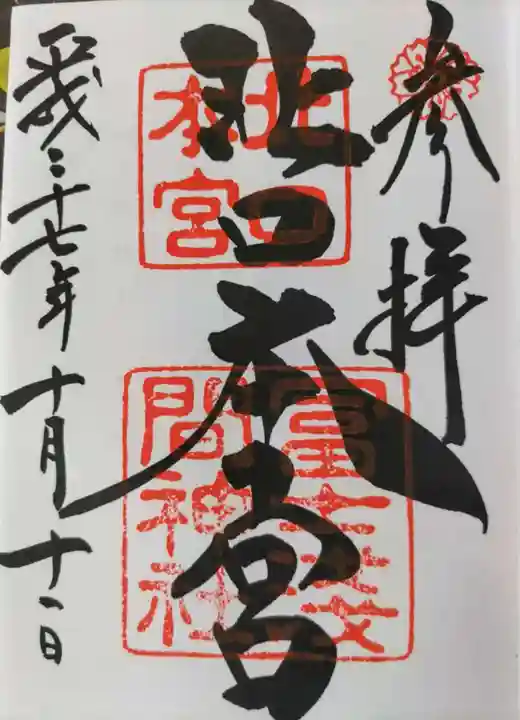 参拝
北口本宮
北口
本宮
冨士淺
間神社
平成二十七年十月十一日